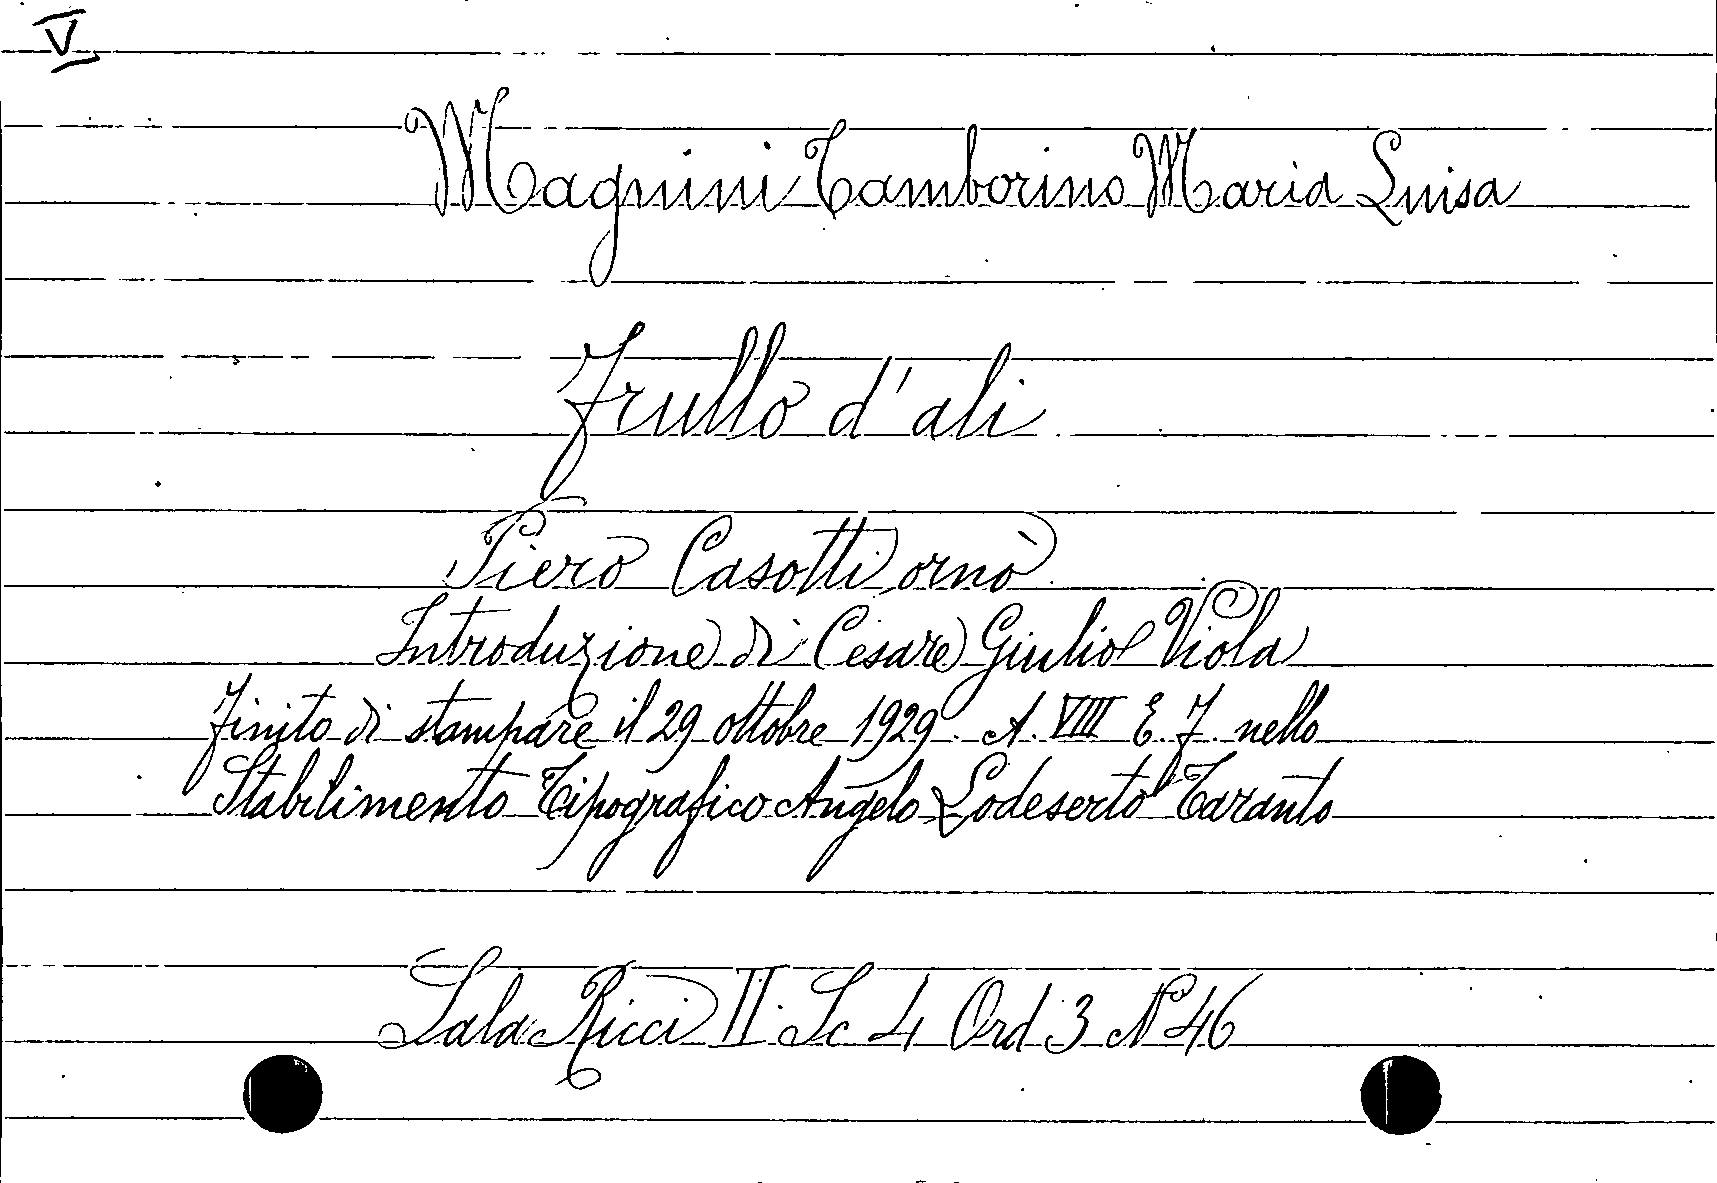 V
Magnini Tamborino Maria Luisa
Frullo d'ali
Piero Casotti ornò
Introduzione di Cesare Giulio Viola
Finito di stampare il 29 ottobre 1929. A. VIII E. F. nello
Stabilimento Tipografico Angelo Lodeserto Taranto
Sala Ricci II Sc 4 Ord 3 N 46